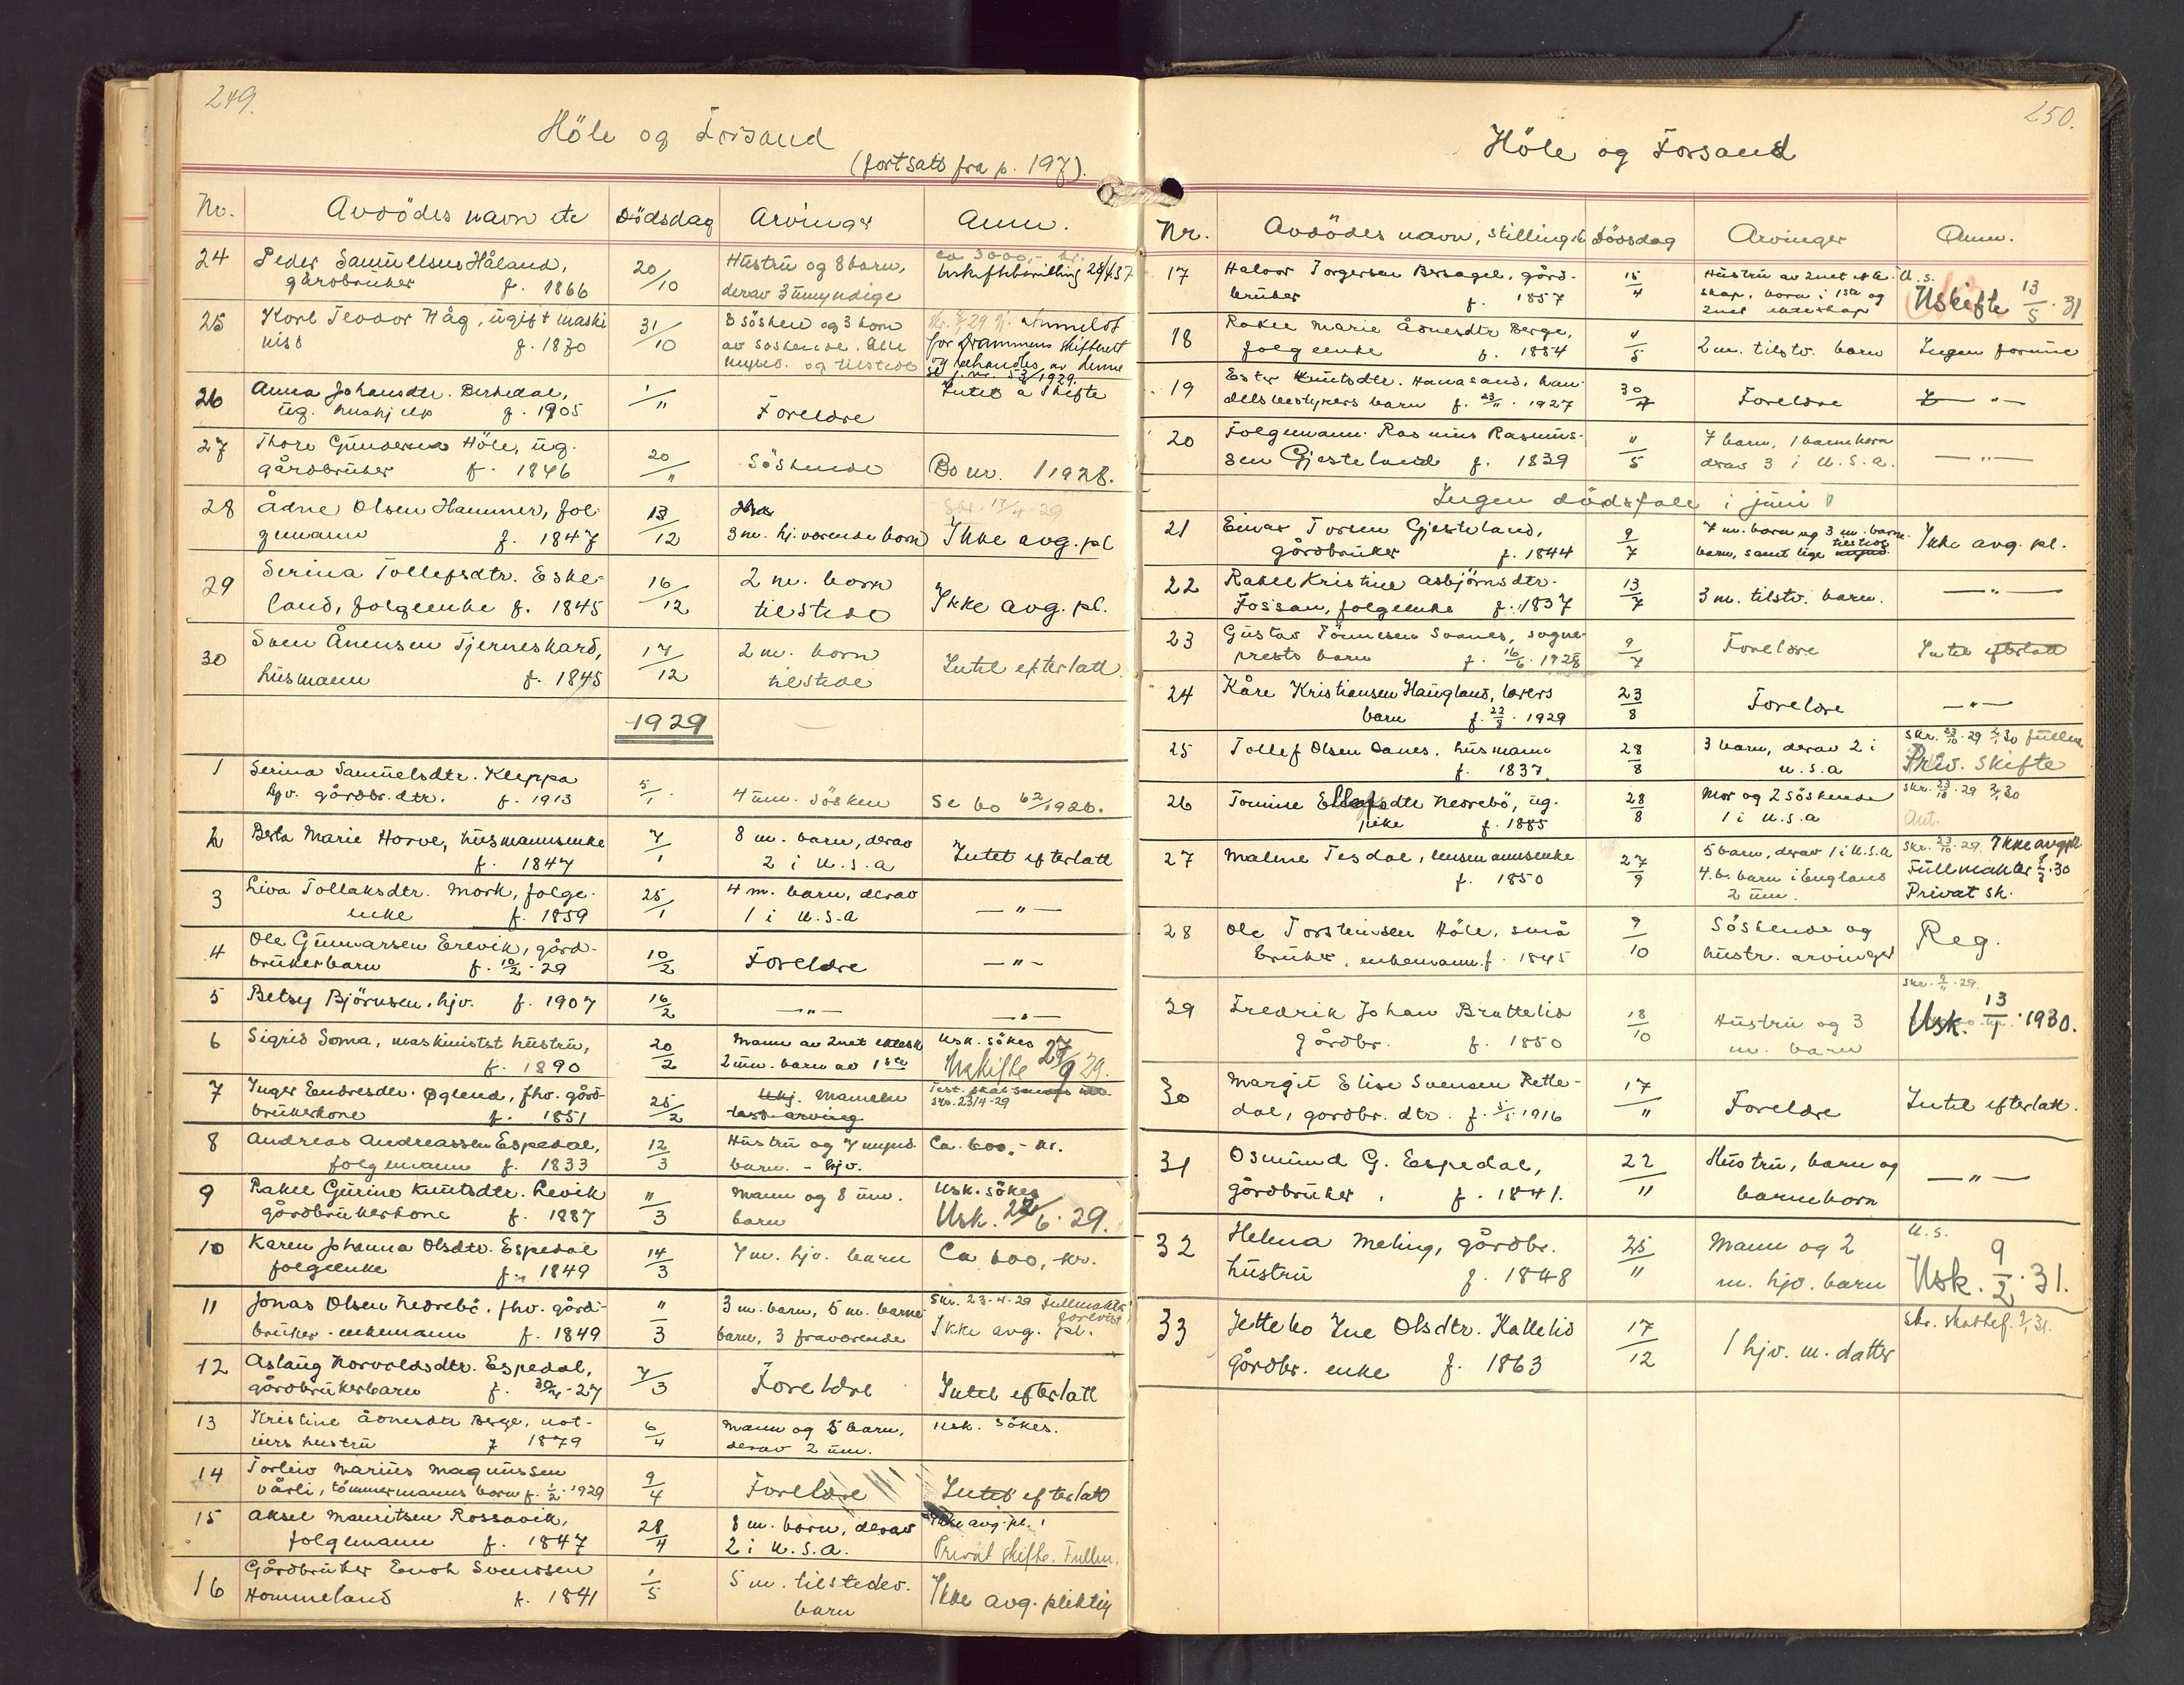 249.
Höle og Forsand
(fortsatt fra p. 197).
Nr. Avdödes navn etc Dödsdag Arvinger Anm.
24 Peder Samuelsens Håland, 20/10 Hustru og 8 barn, ca 3000,- kr.
gårdbruker f. 1866 derav 3 umyndige Uskiftebevilling
25 Karl Teodor Håg, ugift maski 31/10 8 sösken og 3 barn Anmeldt
nist f. 1870 av söskende. Alle for Drammens skifterett
mynd. og tilstede og behandles av denne
1929.
26 Anna Johansdtr. Birkedal, 1/11 Foreldre Intet å skifte
ug. hushjelp f. 1905
27 Thore Gundersen Höle, ug. 20/11 Söskende Bo nr. 1 1928.
gårdbruker f. 1846
28 Ådne Olsen Hammer, fol- 13/12 3 m. hj. værende barn Ikke avg. pl.
gemann f. 1847
29 Serina Tollefsdtr. Eske- 16/12 2 m. barn Ikke avg. pl.
land, folgeenke f. 1845 tilstede
30 Sven Ånensen Tjerneskard, 17/12 2 m. barn Intet efterlatt
husmann f. 1845 tilstede
1929
1 Serina Samuelsdtr. Kleppa 5/1 4 um. sösken Se bo 62/1926.
hjv. gårdbr. dtr. f. 1913
2 Berta Marie Horve, husmannsenke 7/1 8 m. barn, derav Intet efterlatt
f. 1847 2 i U.S.A
3 Liva Tollaksdtr. Mork, folge- 25/1 4 m. barn, derav — " —
enke f. 1859 1 i U.S.A
4 Ole Gunnarsen Erevik, gård- 10/2 Foreldre — " —
brukerbarn f. 10/2 . 29
5 Betsy Björnsen, hjv. f. 1907 16/2 — " — — " —
6 Sigrid Soma, maskinistst hustru, 20/2 Mann av 2net ektesk Usk. sökes
f. 1890 2 um. barn av 1ste Uskifte 27/9 29.
7 Inger Endresdtr. Øglend, fhv. gård- 25/2 Mannen
brukerkone f. 1851 test. arving skr. 23/4-29
8 Andreas Andreassen Espedal, 12/3 Hustru og 7 mynd. Ca. 600,- kr.
folgmann f. 1833 barn. - hjv.
9 Rakel Gurine Knutsdtr. Levik 11/3 Mann og 8 um. Usk. sökes
gårdbrukerkone f. 1887 barn Usk. 22/6 . 29.
10 Karen Johanna Olsdtr. Espedal 14/3 7 m. hjv. barn Ca 600,- kr.
folgeenke f. 1849
11 Jonas Olsen Nedrebö. fhv. gård- 11/3 3 m. barn, 5 m. barne Skr. 23-4-29 Fullmakt
bruker - enkemann f. 1849 barn, 3 fraværende forevist Ikke avg. pl.
12 Aslaug Norvaldsdtr. Espedal, 7/3 Foreldre Intet efterlatt
gårdbrukerbarn f. 30/4 - 27
13 Kristine Ådnesdtr Berge, not- 6/4 Mann og 5 barn, Usk. sökes.
iers hustru f 1879 derav 2 um.
14 Torleiv Marius Magnussen 9/4 Foreldre Intet efterlatt
Dårli, tömmermanns barn f. 1/2 . 1929
15 Aksel Mauritsen Rossavik, 28/4 8 m. barn, derav Ikke avg. pl.
folgemann f. 1847 2 i U.S.A. Privat skifte. Fullm.
16 Gårdbruker Enok Svensen 1/5 5 m. tilstedev. Ikke avg. pliktig
Hommeland f. 1841 barn
250.
Höle og Forsand
Nr. Avdödes navn, stilling etc Dödsdag Arvinger Anm.
17 Halvor Torgersen Bersagel, gård- 15/4 Hustru av 2net ekte- U.s.
bruker f. 1857 skap, barn i 1ste og Uskifte 13/5 . 31
2net ekteskap
18 Rakel Marie Ådnesdtr Berge, "/5 2 m. tilstv. barn Ingen formue
folgeenke f. 1854
19 Ester Knutsdtr. Hanasand, han- 30/4 Foreldre — " —
delsbestyrers barn f. 23/11 . 1927
20 Folgemann Rasmus Rasmus- 11/5 7 barn, 1 barnebarn — " —
sen Gjesteland f. 1839 derav 3 i U.S.A.
Ingen dödsfall i juni
21 Einar Torsen Gjesteland, 9/7 7 m. barn og 3 m. barne- Ikke avg. pl.
gårdbruker f. 1844 barn, samt lige tilsted mynd.
22 Rakel Kristine Asbjörnsdtr. 13/7 3 m. tilstv. barn. — " —
Fossan, folgeenke f. 1837
23 Gustav Tönnesen Svanes, sogne- 9/7 Foreldre Intet efterlatt
prests barn f. 16/6 . 1928
24 Kåre Kristiansen Haugland, lærers 23/8 Foreldre — " —
barn f. 22/8 . 1929
25 Tollef Olsen Oanes. husmann 28/8 3 barn, derav 2 i skr. 23/10 . 29 2/1 30 fullm
f. 1837. U.S.A Priv. skifte
26 Tomine Ellefsdtr Nedrebö, ug. 28/8 Mor og 2 söskende skr. 23/10 . 29 2/1 30
pike f. 1885 1 i U.S.A Aut.
27 Malene Tesdal, lensmannsenke 27/9 5 barn, derav 1 i U.S.A skr. 23/10 . 29. Ikke avg pl
f. 1850 4 b. barn i England Fullmakter . 30
2 um. Privat sk.
28 Ole Torsteinsen Höle, små 9/10 Söskende og Reg.
bruker, enkemann f. 1845 hustr. arvinger
29 Fredrik Johan Brattelid 18/10 Hustru og 3 skr. 9/11 . 29.
gårdbr. f. 1850 m. barn Usk. 13/ . 1930.
30 Margit Elise Svensen Rette- 17/11 Foreldre Intet efterlatt.
dal, gårdbr. dtr. f. 5/5 1916
31 Osmund G. Espedal, 22/11 Hustru, barn og — " —
gårdbruker, f. 1841. barnebarn
32 Helena Meling, gårdbr. 25/11 Mann og 2 U.s.
hustru f. 1848 m. hjv. barn Usk. 9/2 . 31.
33 Jettebo Ine Olsdtr. Kallelid 17/12 1 hjv. m. datter skr. 2/1 31.
gårdbr. enke f. 1863